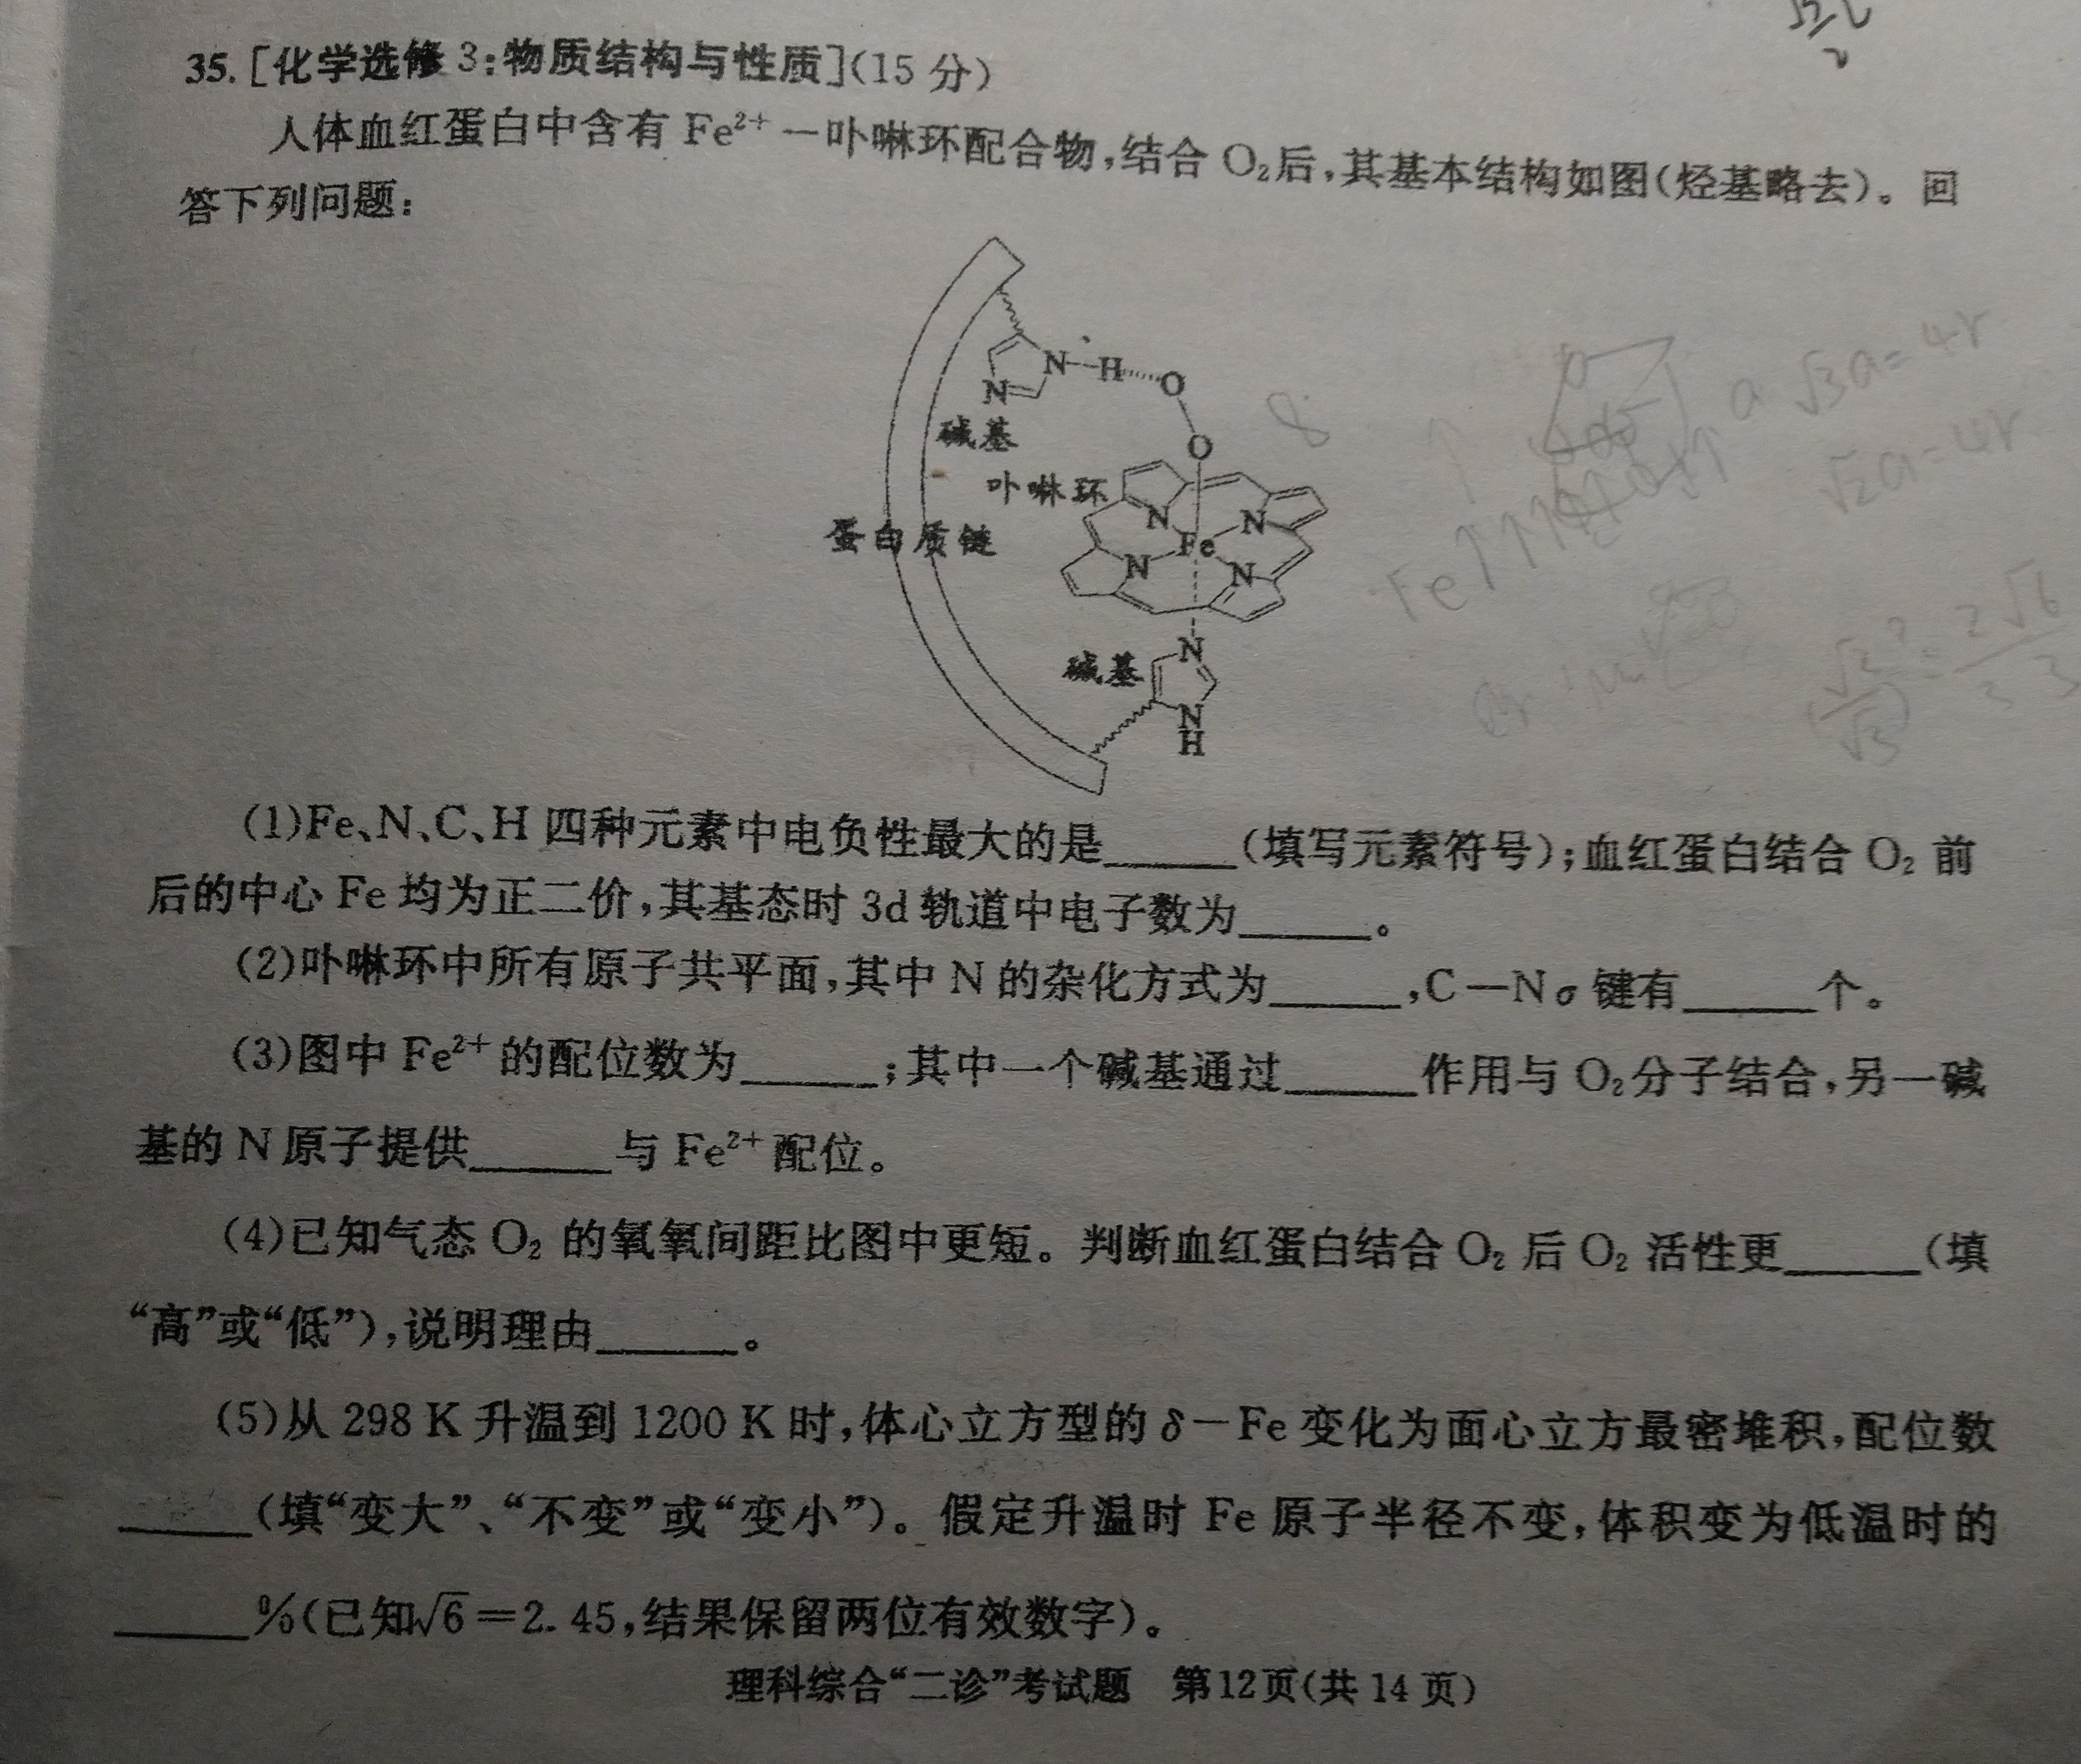 35.[化学选修3:物质结构与性质](15分)
人体血红蛋白中含有 Fe²⁺－卟啉环配合物,结合 O₂后,其基本结构如图(烃基略去)。回
答下列问题:
N—H……O
N
O
碱基
卟啉环
N N
蛋白质键
Fe
N N
N
碱基
N
H
8
a √3a=4r
√2a=4r
Fe↑↑↑
(1)Fe、N、C、H 四种元素中电负性最大的是______(填写元素符号);血红蛋白结合 O₂ 前
后的中心 Fe 均为正二价,其基态时 3d 轨道中电子数为______。
(2)卟啉环中所有原子共平面,其中 N 的杂化方式为______,C—N σ 键有______个。
(3)图中 Fe²⁺ 的配位数为______;其中一个碱基通过______作用与 O₂分子结合,另一碱
基的 N 原子提供______与 Fe²⁺ 配位。
(4)已知气态 O₂ 的氧氧间距比图中更短。判断血红蛋白结合 O₂ 后 O₂ 活性更______(填
“高”或“低”),说明理由______。
(5)从 298 K 升温到 1200 K 时,体心立方型的 δ－Fe 变化为面心立方最密堆积,配位数
______(填“变大”、“不变”或“变小”)。假定升温时 Fe 原子半径不变,体积变为低温时的
______%(已知√6=2.45,结果保留两位有效数字)。
理科综合“二诊”考试题 第12页(共14页)